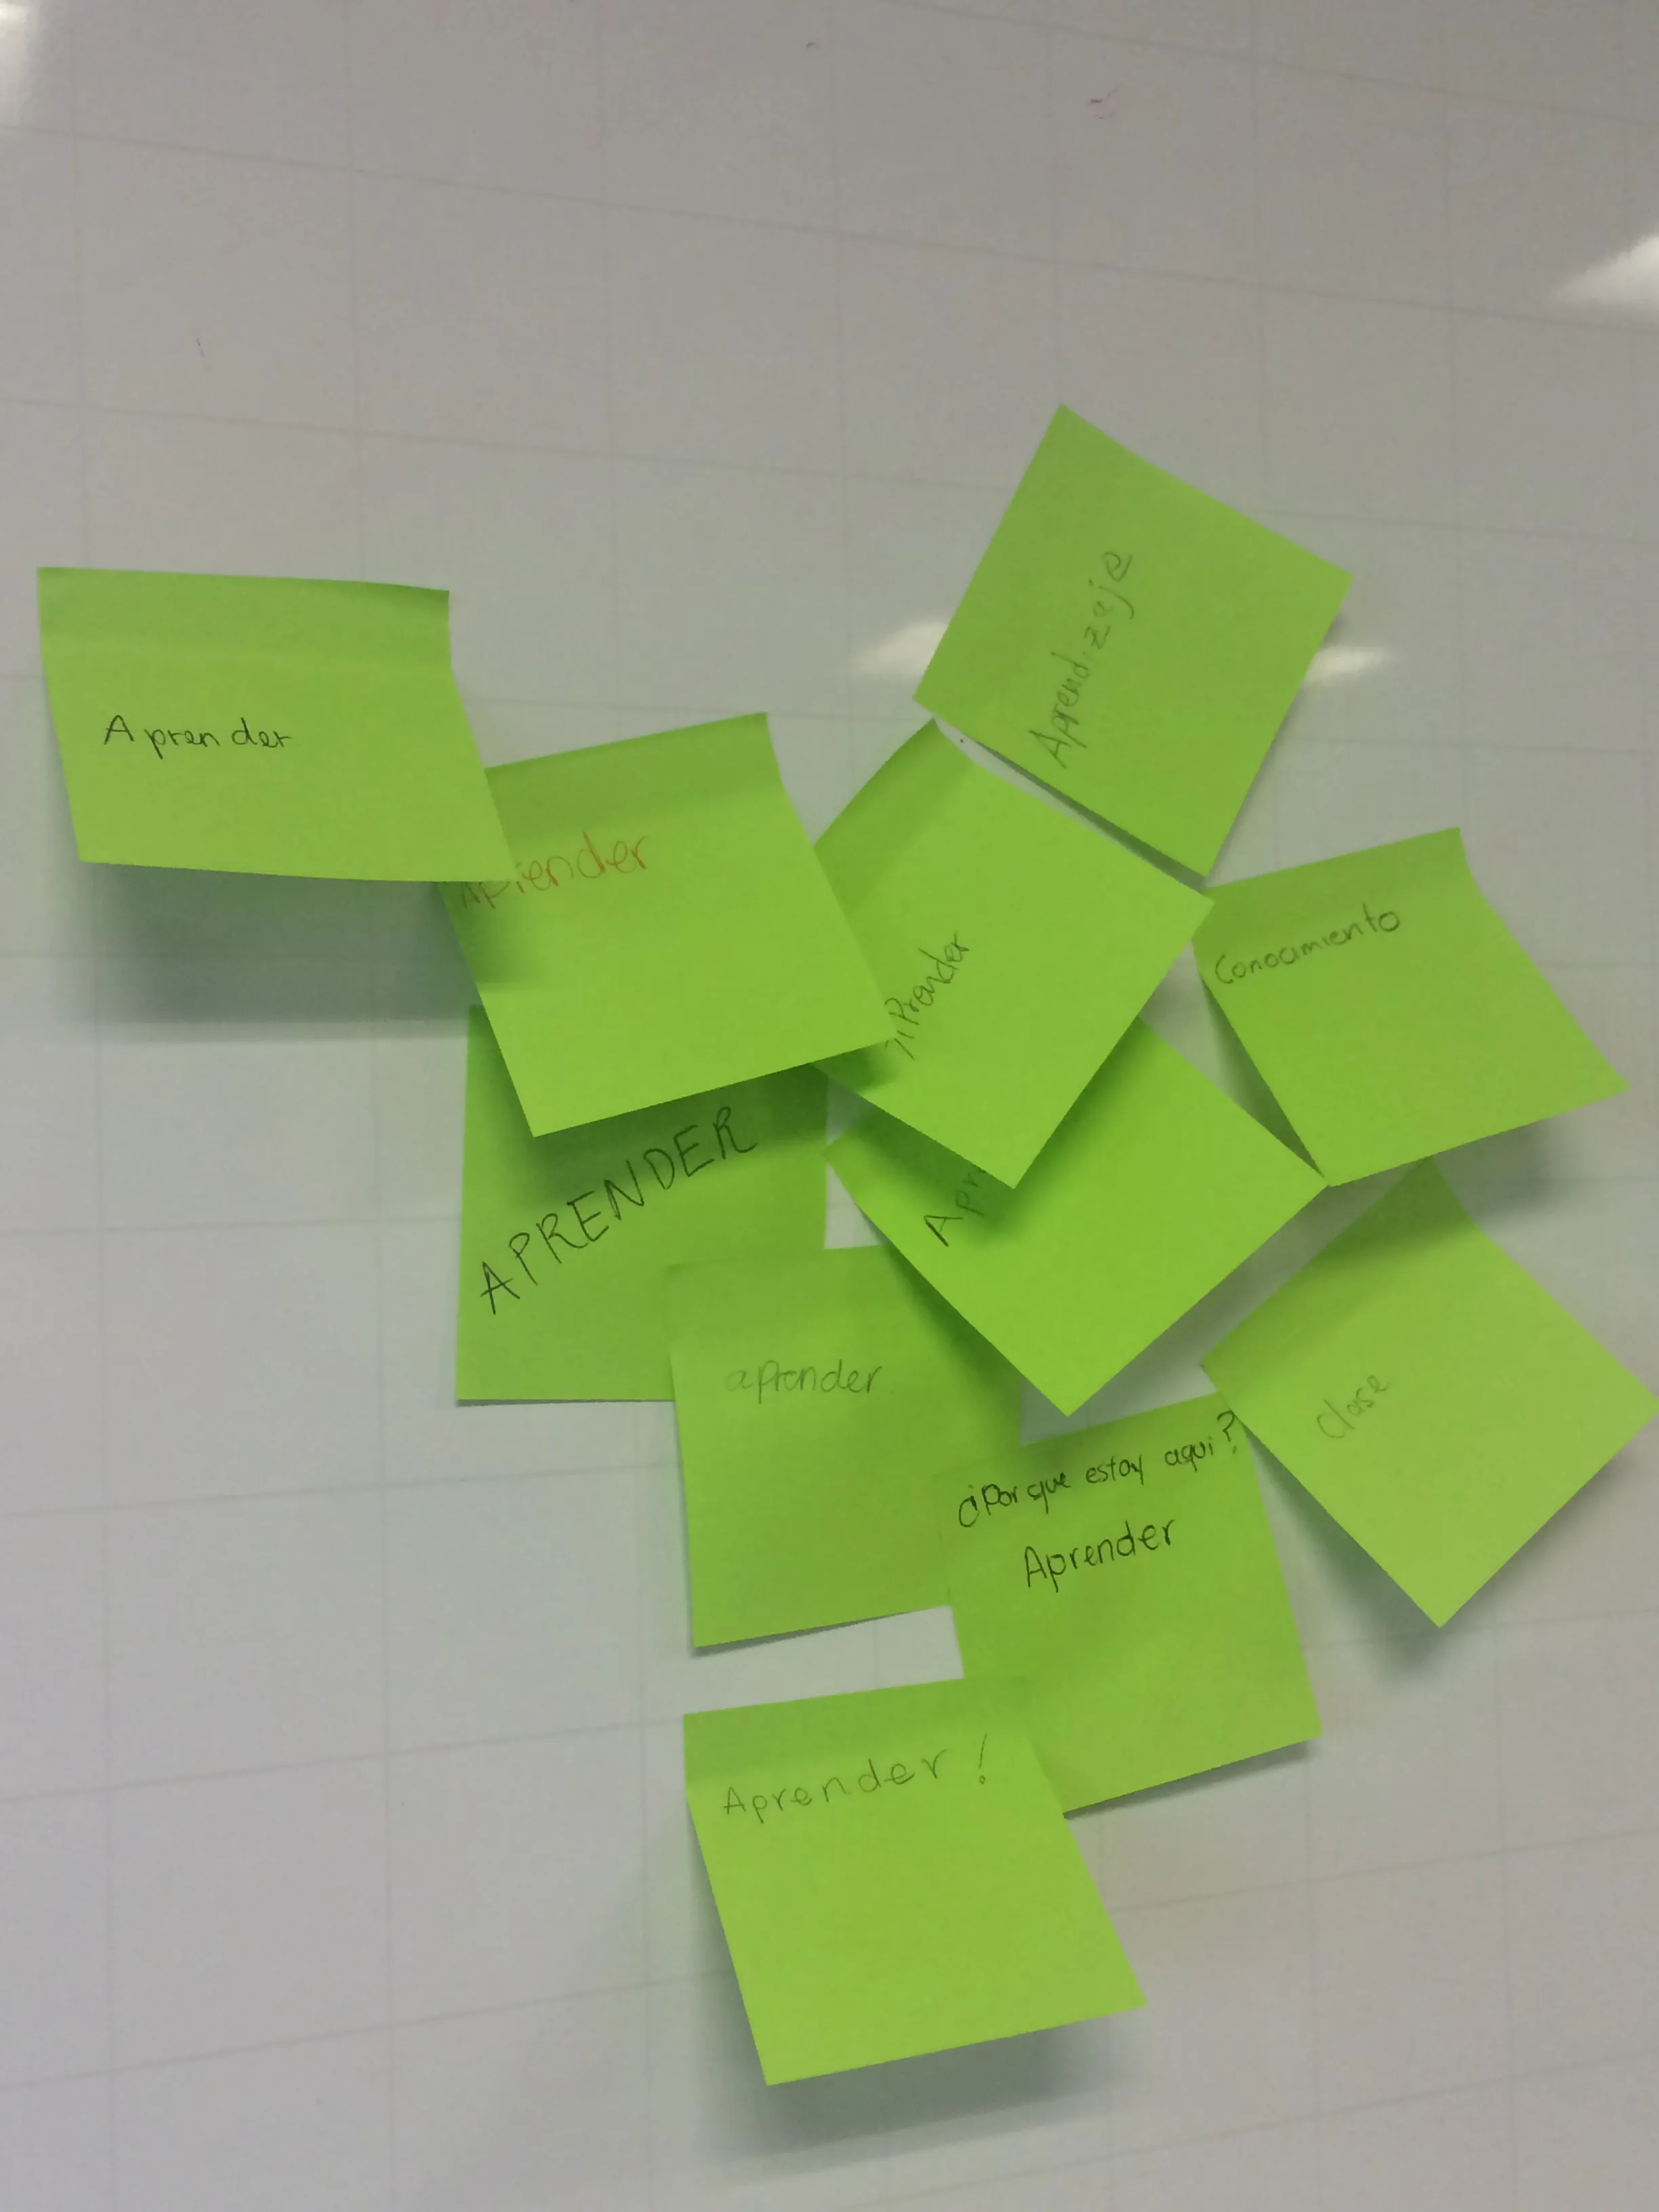 Aprendizaje
Aprender
Aprender
Aprender
Conocimiento
APRENDER
Apr
aprender
clase
¿Por que estoy aqui?
Aprender
Aprender!